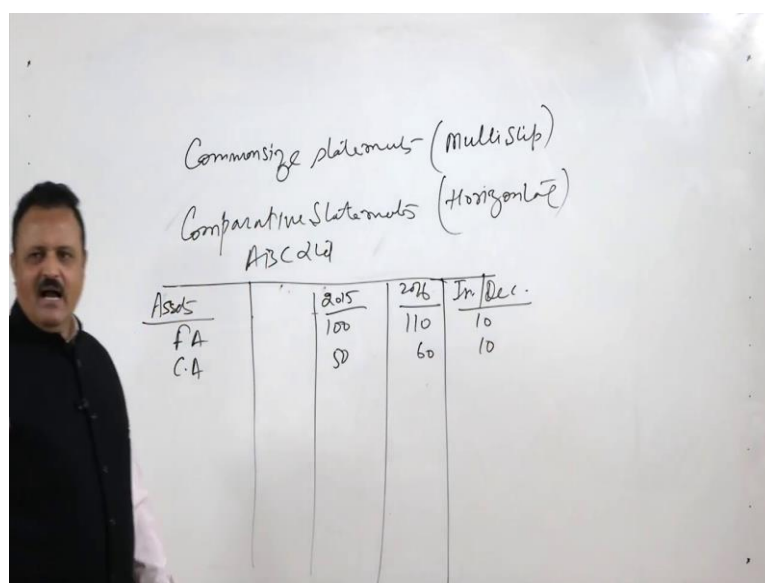 Commonsize statements (Multi Step)
Comparative Statements (Horizontal)
ABC Ltd
Assets 2015 2016 In./Dec.
FA 100 110 10
C.A 50 60 10